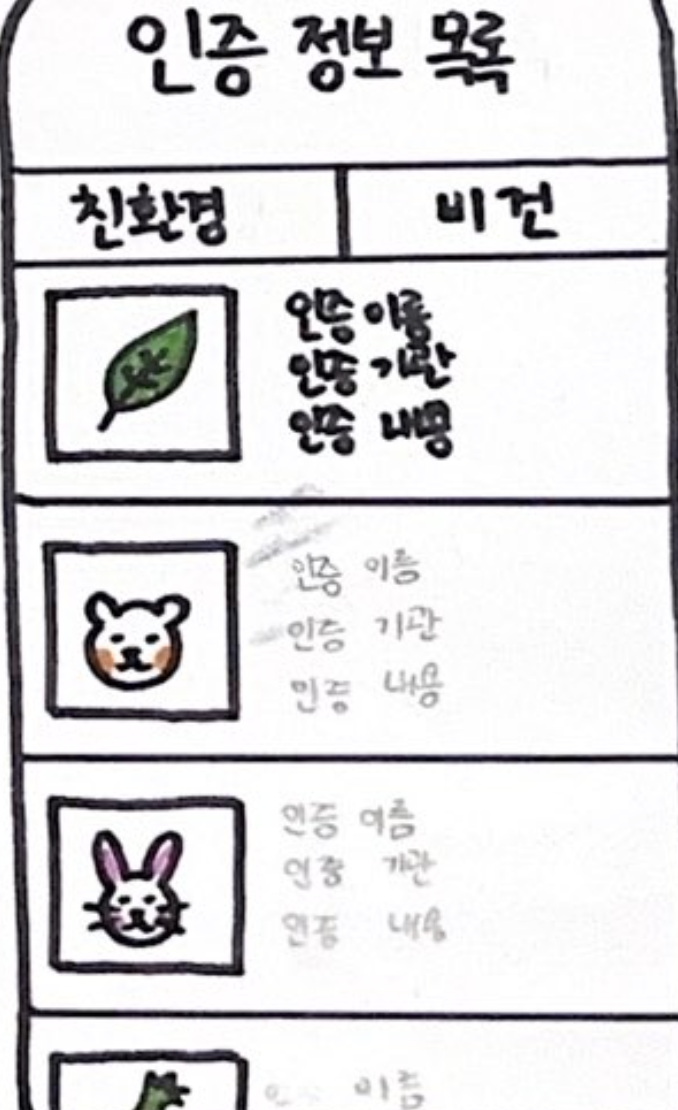 인증 정보 목록
친환경
비건
인증 이름
인증 기관
인증 내용
인증 이름
인증 기관
인증 내용
인증 이름
인증 기관
인증 내용
이름